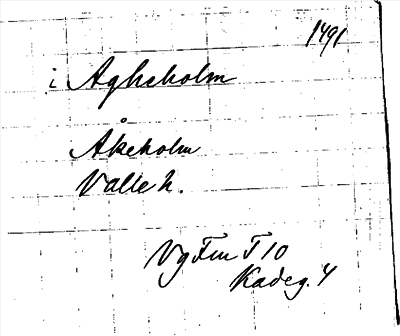 1491
i Agheholm
Åkeholm
Valle h.
VgFmT 10
Kadeg. 4